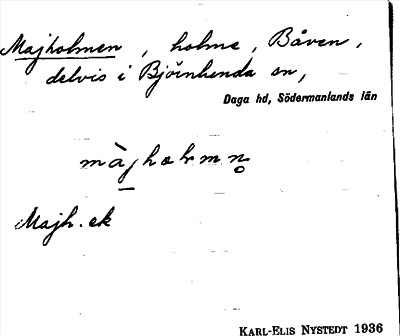 Majholmen, holme, Båven,
delvis i Björnlunda sn,
Daga hd, Södermanlands län
màjholmn̥
Majh. ek
KARL-ELIS NYSTEDT 1936